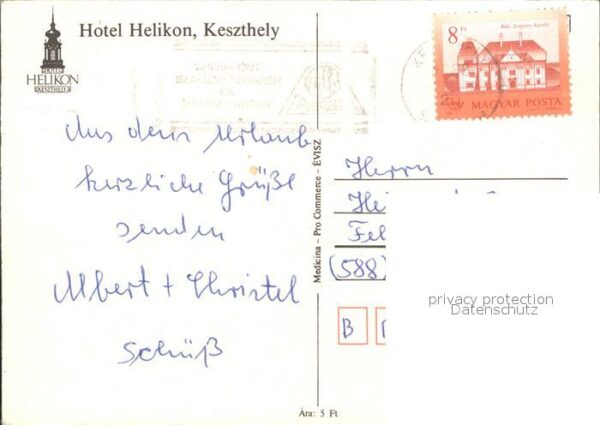 Hotel Helikon, Keszthely
HOTEL
HELIKON
KESZTHELY
8 Ft
MAGYAR POSTA
Aus dem Urlaub
herzliche Grüße
senden
Albert + Christel
Schüß
Medicina – Pro Commerce – ÉVISZ
Herrn
Hei
Fel
(588)
B
privacy protection
Datenschutz
Ára: 5 Ft